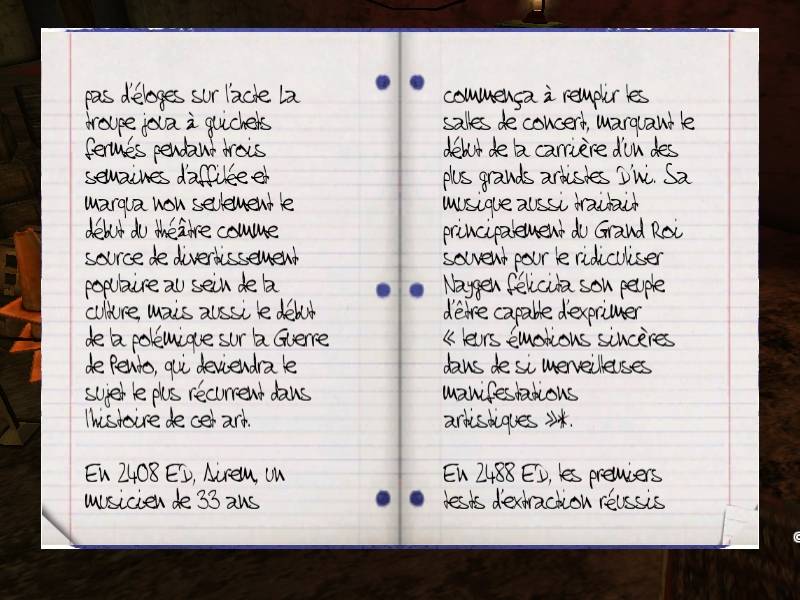 pas d'éloges sur l'acte. La
troupe joua à guichets
fermés pendant trois
semaines d'affilée et
marqua non seulement le
début du théâtre comme
source de divertissement
populaire au sein de la
culture, mais aussi le début
de la polémique sur la Guerre
de Pento, qui deviendra le
sujet le plus récurrent dans
l'histoire de cet art.
En 2408 ED, Airem, un
musicien de 33 ans
commença à remplir les
salles de concert, marquant le
début de la carrière d'un des
plus grands artistes D'ni. Sa
musique aussi traitait
principalement du Grand Roi
souvent pour le ridiculiser
Naygen félicita son peuple
d'être capable d'exprimer
« leurs émotions sincères
dans de si merveilleuses
manifestations
artistiques »*.
En 2488 ED, les premiers
tests d'extraction réussis
©